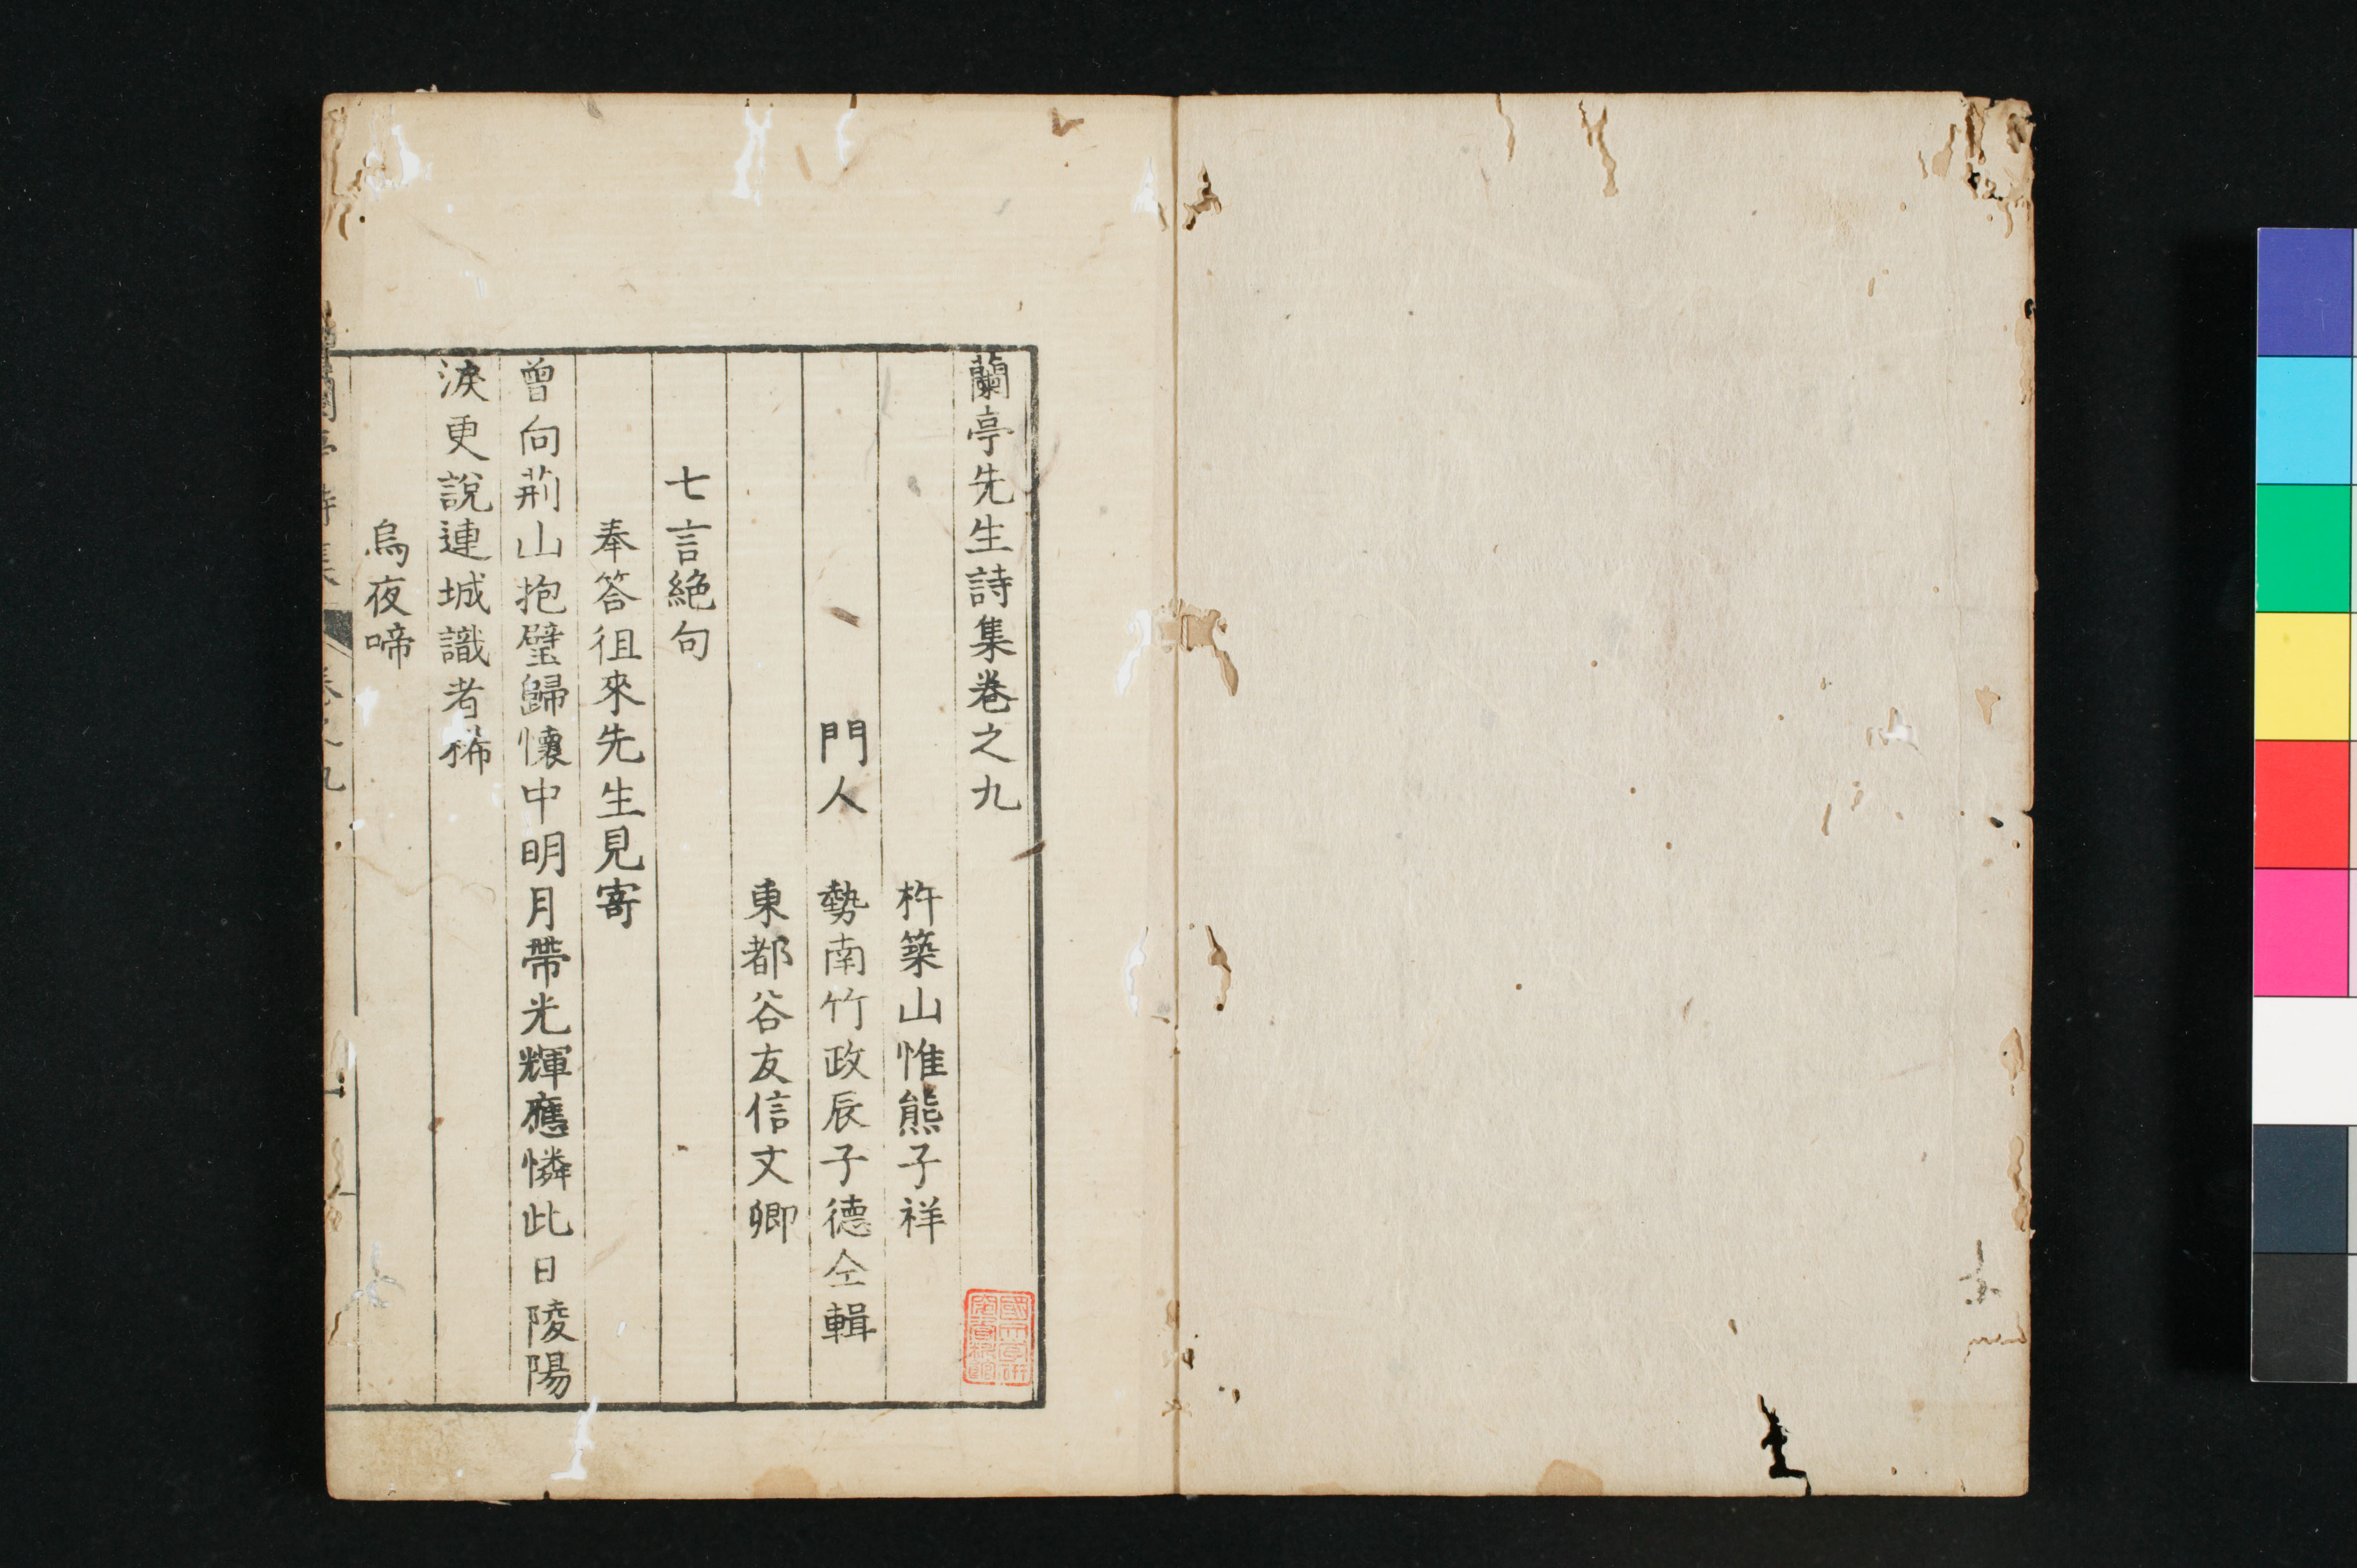 蘭亭先生詩集卷之九
杵築山惟熊子祥
門人　勢南竹政辰子德仝輯
東都谷友信文卿
七言絶句
奉答徂來先生見寄
曾向荊山抱璧歸懷中明月帶光輝應憐此日陵陽
淚更說連城識者稀
烏夜啼